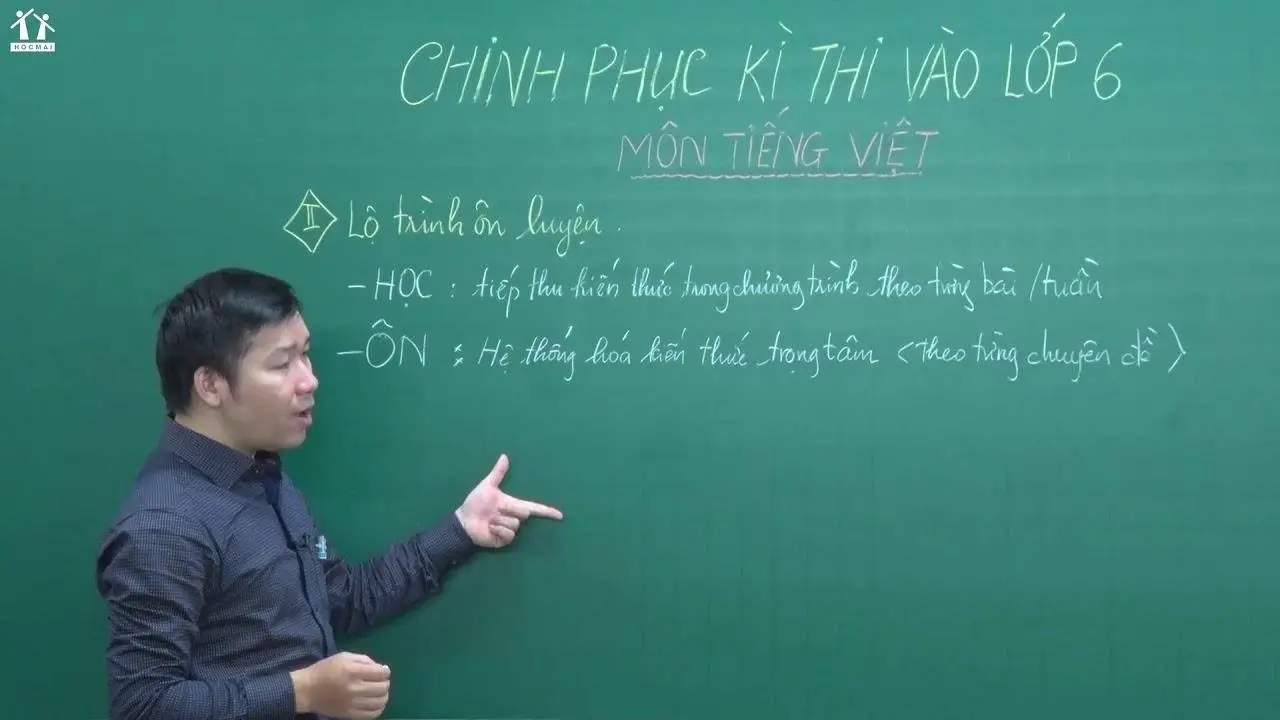 HOCMAI
CHINH PHỤC KÌ THI VÀO LỚP 6
MÔN TIẾNG VIỆT
II Lộ trình ôn luyện.
- HỌC : tiếp thu kiến thức trong chương trình theo từng bài / tuần
- ÔN : Hệ thống hóa kiến thức trọng tâm <theo từng chuyên đề>